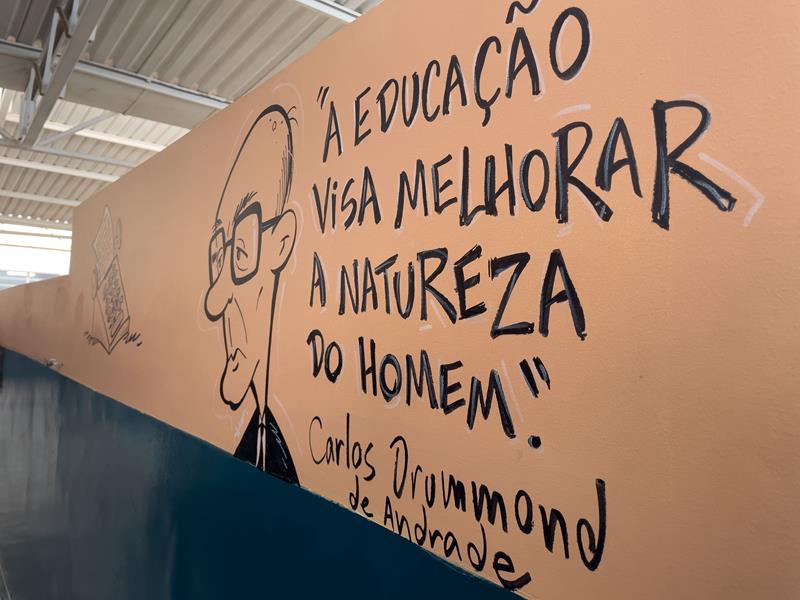 "A EDUCAÇÃO
VISA MELHORAR
A NATUREZA
DO HOMEM".
Carlos Drummond
de Andrade